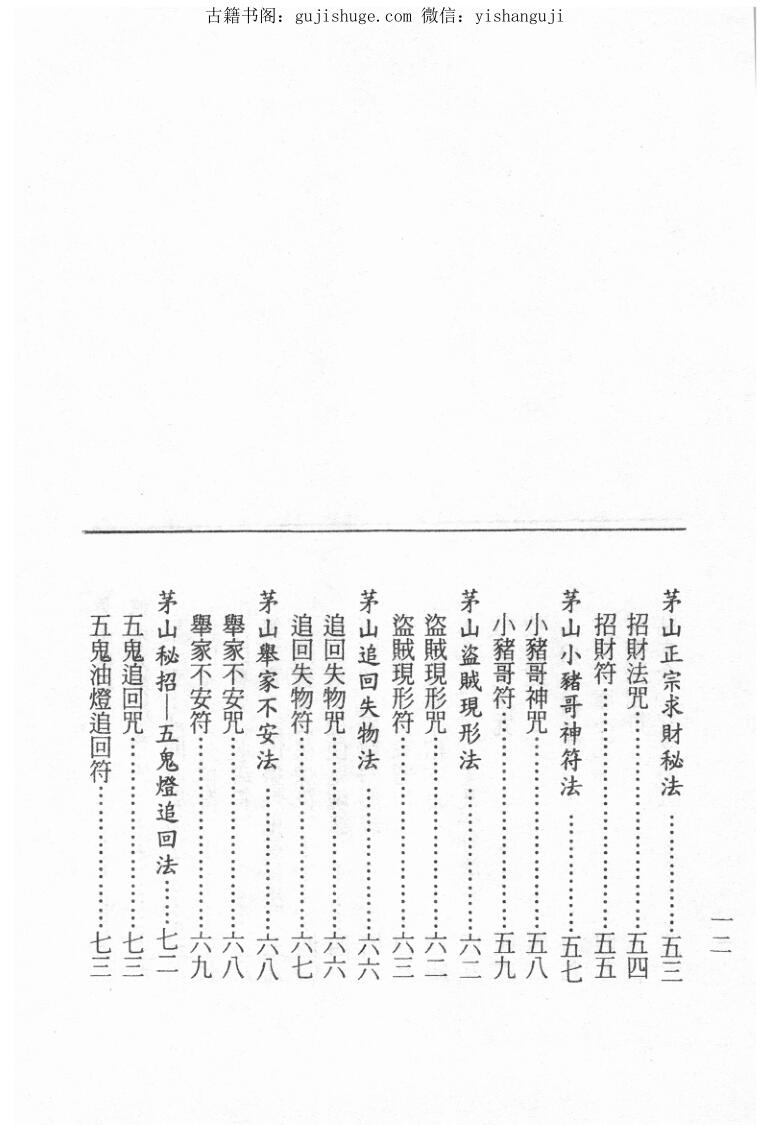 古籍书阁：gujishuge.com 微信：yishanguji
一二
茅山正宗求財秘法…………五三
招財法咒…………五四
招財符…………五五
茅山小豬哥神符法…………五七
小豬哥神咒…………五八
小豬哥符…………五九
茅山盜賊現形法…………六二
盜賊現形咒…………六二
盜賊現形符…………六三
茅山追回失物法…………六六
追回失物咒…………六六
追回失物符…………六七
茅山舉家不安法…………六八
舉家不安咒…………六八
舉家不安符…………六九
茅山秘招—五鬼燈追回法…………七二
五鬼追回咒…………七三
五鬼油燈追回符…………七三